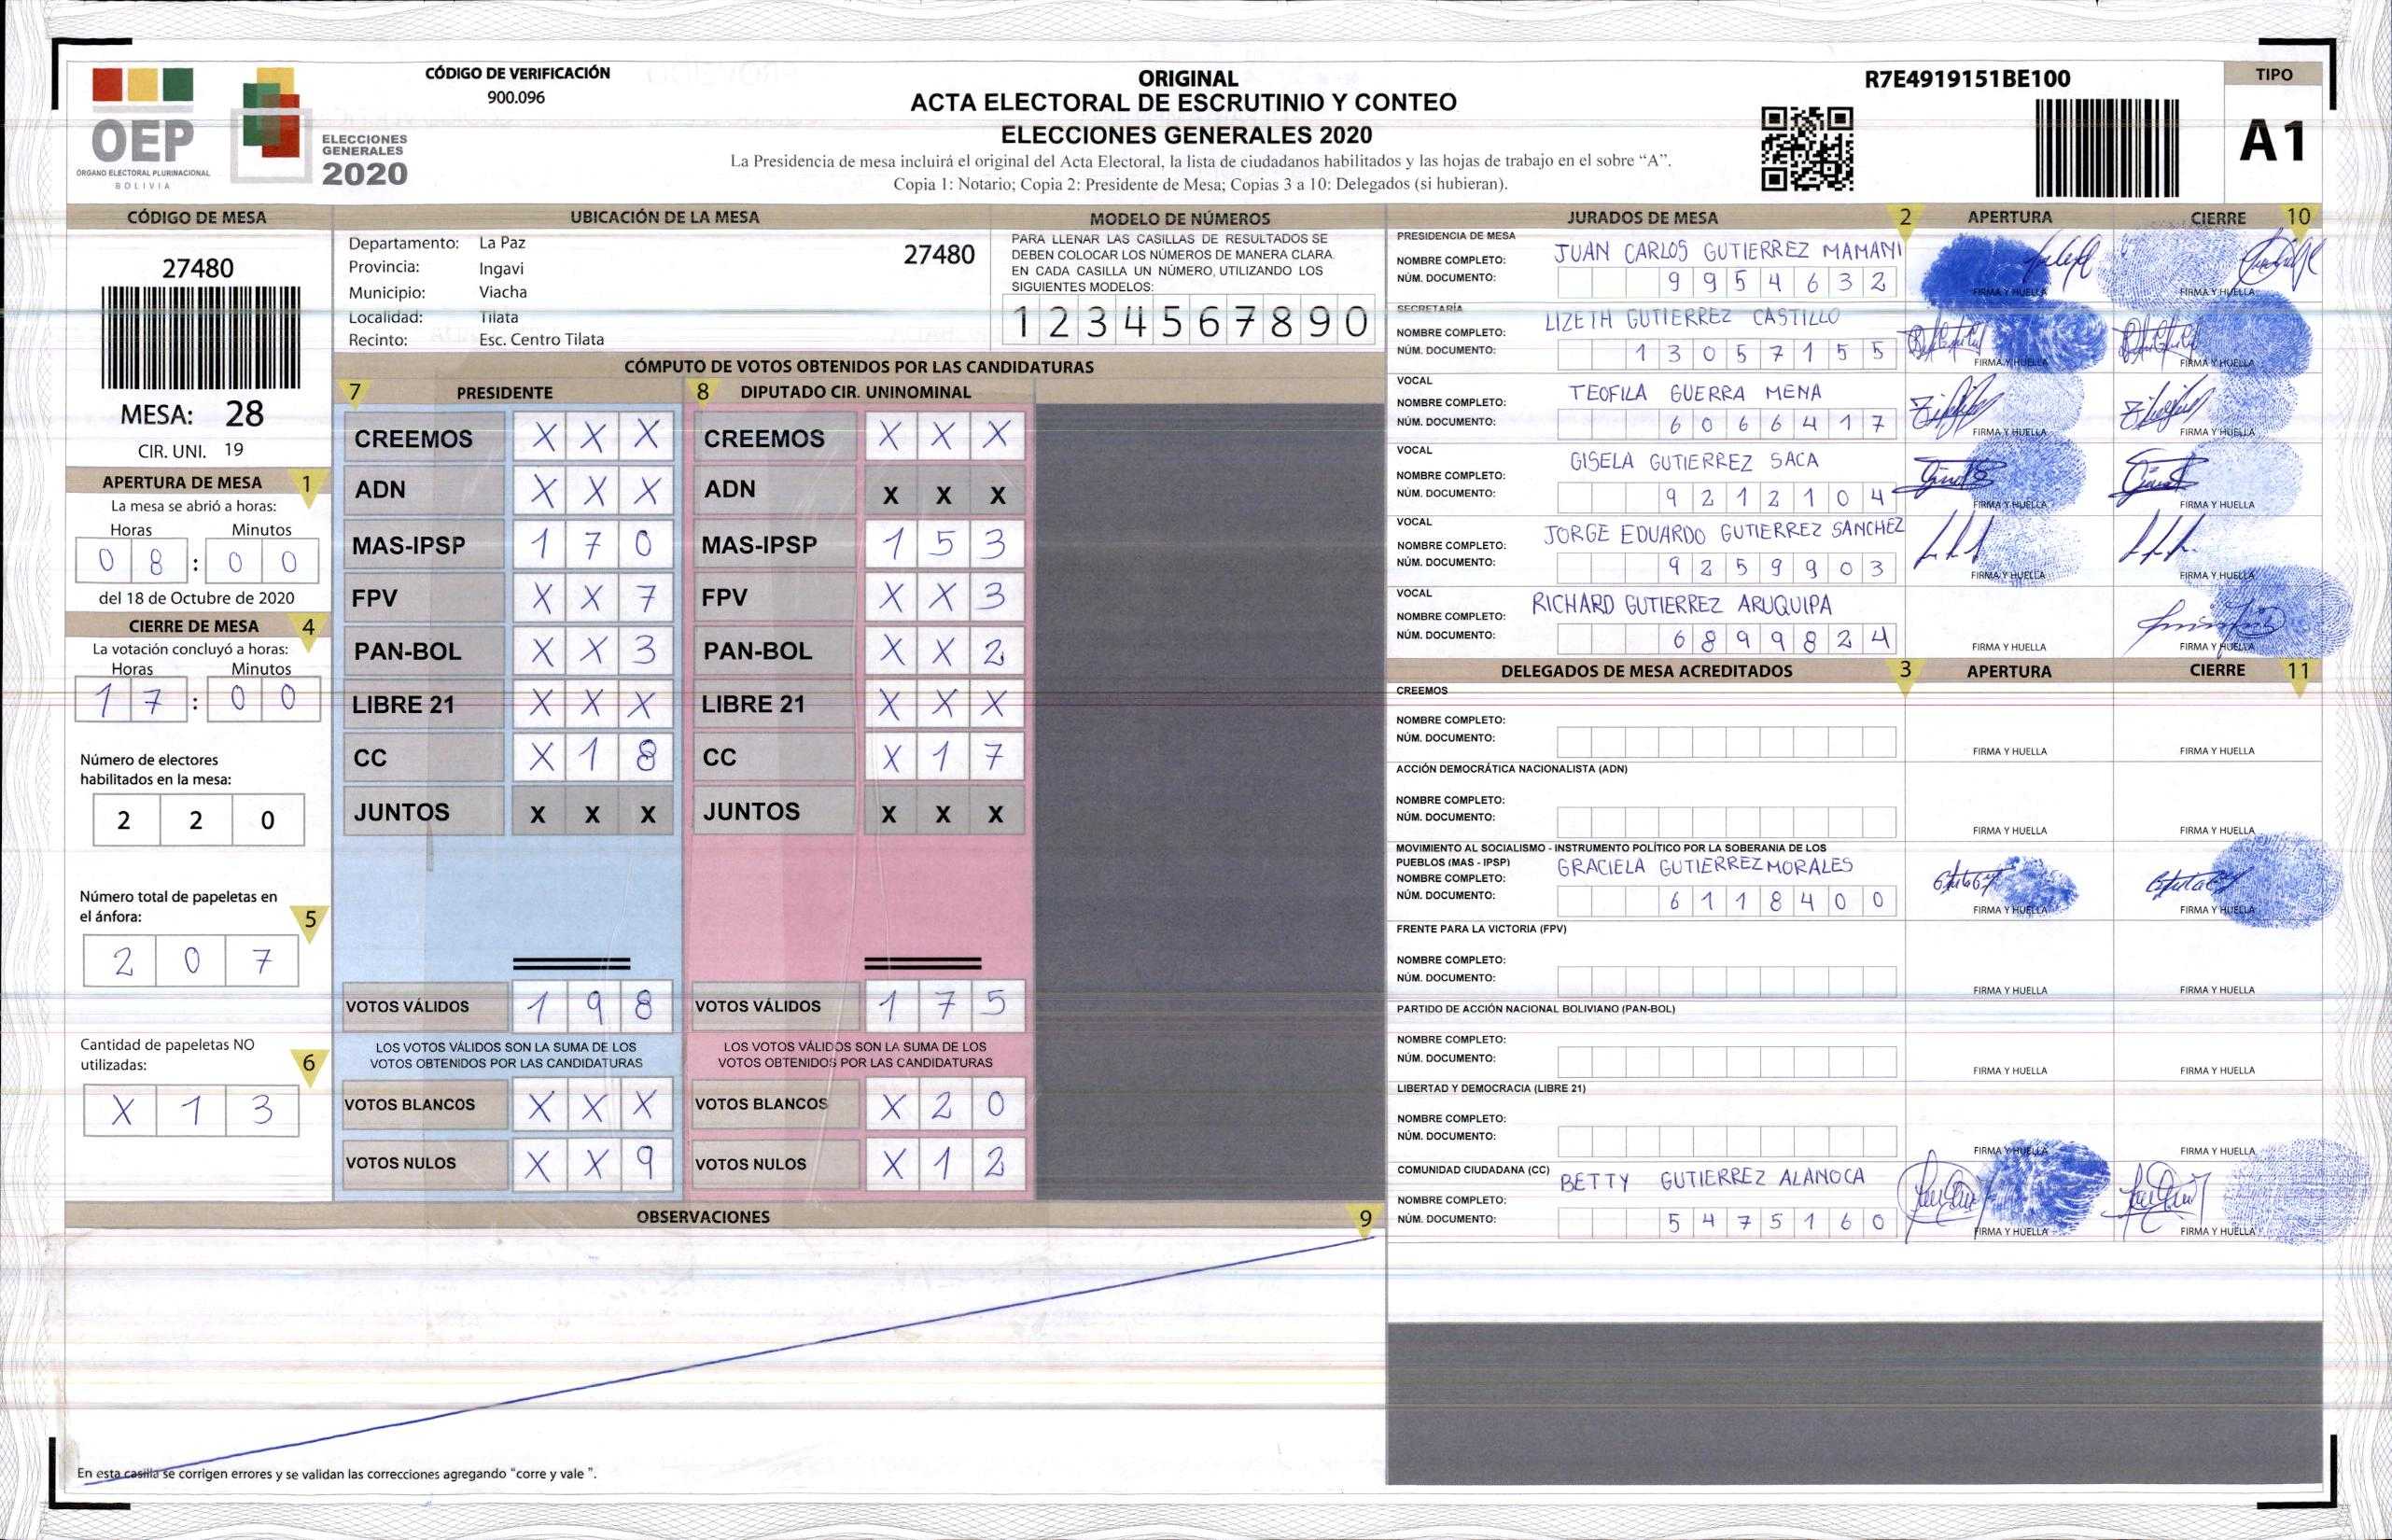 OEP
ÓRGANO ELECTORAL PLURINACIONAL
BOLIVIA
ELECCIONES
GENERALES
2020
CÓDIGO DE VERIFICACIÓN
900.096
ORIGINAL
ACTA ELECTORAL DE ESCRUTINIO Y CONTEO
ELECCIONES GENERALES 2020
La Presidencia de mesa incluirá el original del Acta Electoral, la lista de ciudadanos habilitados y las hojas de trabajo en el sobre “A”.
Copia 1: Notario; Copia 2: Presidente de Mesa; Copias 3 a 10: Delegados (si hubieran).
R7E4919151BE100
TIPO
A1
CÓDIGO DE MESA
27480
MESA: 28
CIR. UNI. 19
APERTURA DE MESA 1
La mesa se abrió a horas:
Horas Minutos
0 8 : 0 0
del 18 de Octubre de 2020
CIERRE DE MESA 4
La votación concluyó a horas:
Horas Minutos
1 7 : 0 0
Número de electores
habilitados en la mesa:
2 2 0
Número total de papeletas en
el ánfora: 5
2 0 7
Cantidad de papeletas NO
utilizadas: 6
X 1 3
UBICACIÓN DE LA MESA
Departamento: La Paz 27480
Provincia: Ingavi
Municipio: Viacha
Localidad: Tilata
Recinto: Esc. Centro Tilata
MODELO DE NÚMEROS
PARA LLENAR LAS CASILLAS DE RESULTADOS SE
DEBEN COLOCAR LOS NÚMEROS DE MANERA CLARA.
EN CADA CASILLA UN NÚMERO, UTILIZANDO LOS
SIGUIENTES MODELOS:
1 2 3 4 5 6 7 8 9 0
CÓMPUTO DE VOTOS OBTENIDOS POR LAS CANDIDATURAS
7 PRESIDENTE
CREEMOS X X X
ADN X X X
MAS-IPSP 1 7 0
FPV X X 7
PAN-BOL X X 3
LIBRE 21 X X X
CC X 1 8
JUNTOS X X X
VOTOS VÁLIDOS 1 9 8
LOS VOTOS VÁLIDOS SON LA SUMA DE LOS
VOTOS OBTENIDOS POR LAS CANDIDATURAS
VOTOS BLANCOS X X X
VOTOS NULOS X X 9
8 DIPUTADO CIR. UNINOMINAL
CREEMOS X X X
ADN X X X
MAS-IPSP 1 5 3
FPV X X 3
PAN-BOL X X 2
LIBRE 21 X X X
CC X 1 7
JUNTOS X X X
VOTOS VÁLIDOS 1 7 5
LOS VOTOS VÁLIDOS SON LA SUMA DE LOS
VOTOS OBTENIDOS POR LAS CANDIDATURAS
VOTOS BLANCOS X 2 0
VOTOS NULOS X 1 2
OBSERVACIONES 9
En esta casilla se corrigen errores y se validan las correcciones agregando “corre y vale ”.
JURADOS DE MESA 2 APERTURA CIERRE 10
PRESIDENCIA DE MESA
NOMBRE COMPLETO: JUAN CARLOS GUTIERREZ MAMANI
NÚM. DOCUMENTO: 9 9 5 4 6 3 2
FIRMA Y HUELLA FIRMA Y HUELLA
SECRETARÍA
NOMBRE COMPLETO: LIZETH GUTIERREZ CASTILLO
NÚM. DOCUMENTO: 1 3 0 5 7 1 5 5
FIRMA Y HUELLA FIRMA Y HUELLA
VOCAL
NOMBRE COMPLETO: TEOFILA GUERRA MENA
NÚM. DOCUMENTO: 6 0 6 6 4 1 7
FIRMA Y HUELLA FIRMA Y HUELLA
VOCAL
NOMBRE COMPLETO: GISELA GUTIERREZ SACA
NÚM. DOCUMENTO: 9 2 1 2 1 0 4
FIRMA Y HUELLA FIRMA Y HUELLA
VOCAL
NOMBRE COMPLETO: JORGE EDUARDO GUTIERREZ SANCHEZ
NÚM. DOCUMENTO: 9 2 5 9 9 0 3
FIRMA Y HUELLA FIRMA Y HUELLA
VOCAL
NOMBRE COMPLETO: RICHARD GUTIERREZ ARUQUIPA
NÚM. DOCUMENTO: 6 8 9 9 8 2 4
FIRMA Y HUELLA FIRMA Y HUELLA
DELEGADOS DE MESA ACREDITADOS 3 APERTURA CIERRE 11
CREEMOS
NOMBRE COMPLETO:
NÚM. DOCUMENTO:
FIRMA Y HUELLA FIRMA Y HUELLA
ACCIÓN DEMOCRÁTICA NACIONALISTA (ADN)
NOMBRE COMPLETO:
NÚM. DOCUMENTO:
FIRMA Y HUELLA FIRMA Y HUELLA
MOVIMIENTO AL SOCIALISMO - INSTRUMENTO POLÍTICO POR LA SOBERANIA DE LOS
PUEBLOS (MAS - IPSP)
NOMBRE COMPLETO: GRACIELA GUTIERREZ MORALES
NÚM. DOCUMENTO: 6 1 1 8 4 0 0
FIRMA Y HUELLA FIRMA Y HUELLA
FRENTE PARA LA VICTORIA (FPV)
NOMBRE COMPLETO:
NÚM. DOCUMENTO:
FIRMA Y HUELLA FIRMA Y HUELLA
PARTIDO DE ACCIÓN NACIONAL BOLIVIANO (PAN-BOL)
NOMBRE COMPLETO:
NÚM. DOCUMENTO:
FIRMA Y HUELLA FIRMA Y HUELLA
LIBERTAD Y DEMOCRACIA (LIBRE 21)
NOMBRE COMPLETO:
NÚM. DOCUMENTO:
FIRMA Y HUELLA FIRMA Y HUELLA
COMUNIDAD CIUDADANA (CC)
NOMBRE COMPLETO: BETTY GUTIERREZ ALANOCA
NÚM. DOCUMENTO: 5 4 7 5 1 6 0
FIRMA Y HUELLA FIRMA Y HUELLA